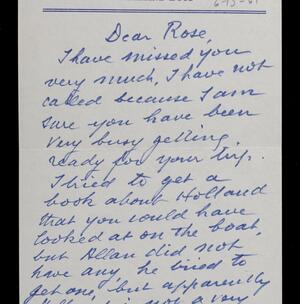 6-13-61
Dear Rose,
I have missed you
very much, I have not
called because I am
sure you have been
very busy getting
ready for your trip.
I tried to get a
book about Holland
that you could have
looked at on the boat,
but Allan did not
have any, he tried to
get one, but apparently
is not a very